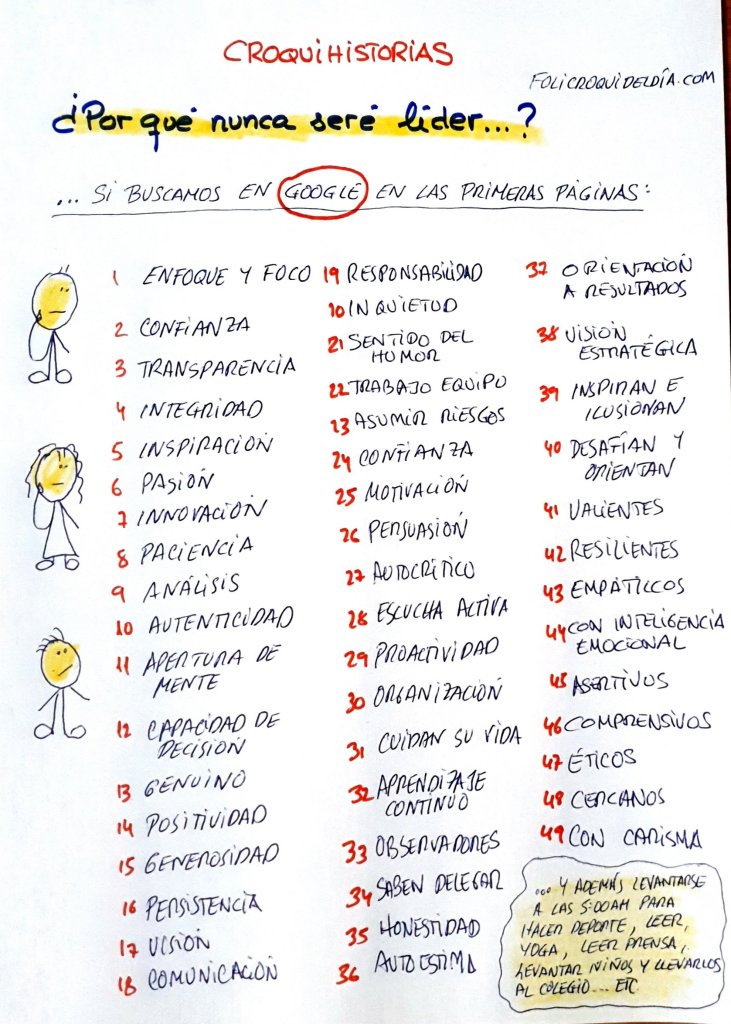 CROQUIHISTORIAS
FOLICROQUIDELDÍA.COM
¿Por qué nunca seré líder...?
... SI BUSCAMOS EN GOOGLE EN LAS PRIMERAS PÁGINAS:
1 ENFOQUE Y FOCO
2 CONFIANZA
3 TRANSPARENCIA
4 INTEGRIDAD
5 INSPIRACIÓN
6 PASIÓN
7 INNOVACIÓN
8 PACIENCIA
9 ANÁLISIS
10 AUTENTICIDAD
11 APERTURA DE
MENTE
12 CAPACIDAD DE
DECISIÓN
13 GENUINO
14 POSITIVIDAD
15 GENEROSIDAD
16 PERSISTENCIA
17 VISIÓN
18 COMUNICACIÓN
19 RESPONSABILIDAD
10 INQUIETUD
21 SENTIDO DEL
HUMOR
22 TRABAJO EQUIPO
23 ASUMIR RIESGOS
24 CONFIANZA
25 MOTIVACIÓN
26 PERSUASIÓN
27 AUTOCRÍTICO
28 ESCUCHA ACTIVA
29 PROACTIVIDAD
30 ORGANIZACIÓN
31 CUIDAN SU VIDA
32 APRENDIZAJE
CONTINUO
33 OBSERVADORES
34 SABEN DELEGAR
35 HONESTIDAD
36 AUTOESTIMA
37 ORIENTACIÓN
A RESULTADOS
38 VISIÓN
ESTRATÉGICA
39 INSPIRAN E
ILUSIONAN
40 DESAFÍAN Y
ORIENTAN
41 VALIENTES
42 RESILIENTES
43 EMPÁTICOS
44 CON INTELIGENCIA
EMOCIONAL
45 ASERTIVOS
46 COMPRENSIVOS
47 ÉTICOS
48 CERCANOS
49 CON CARISMA
... Y ADEMÁS LEVANTARSE
A LAS 5:00AM PARA
HACER DEPORTE, LEER,
YOGA, LEER PRENSA,
LEVANTAR NIÑOS Y LLEVARLOS
AL COLEGIO... ETC